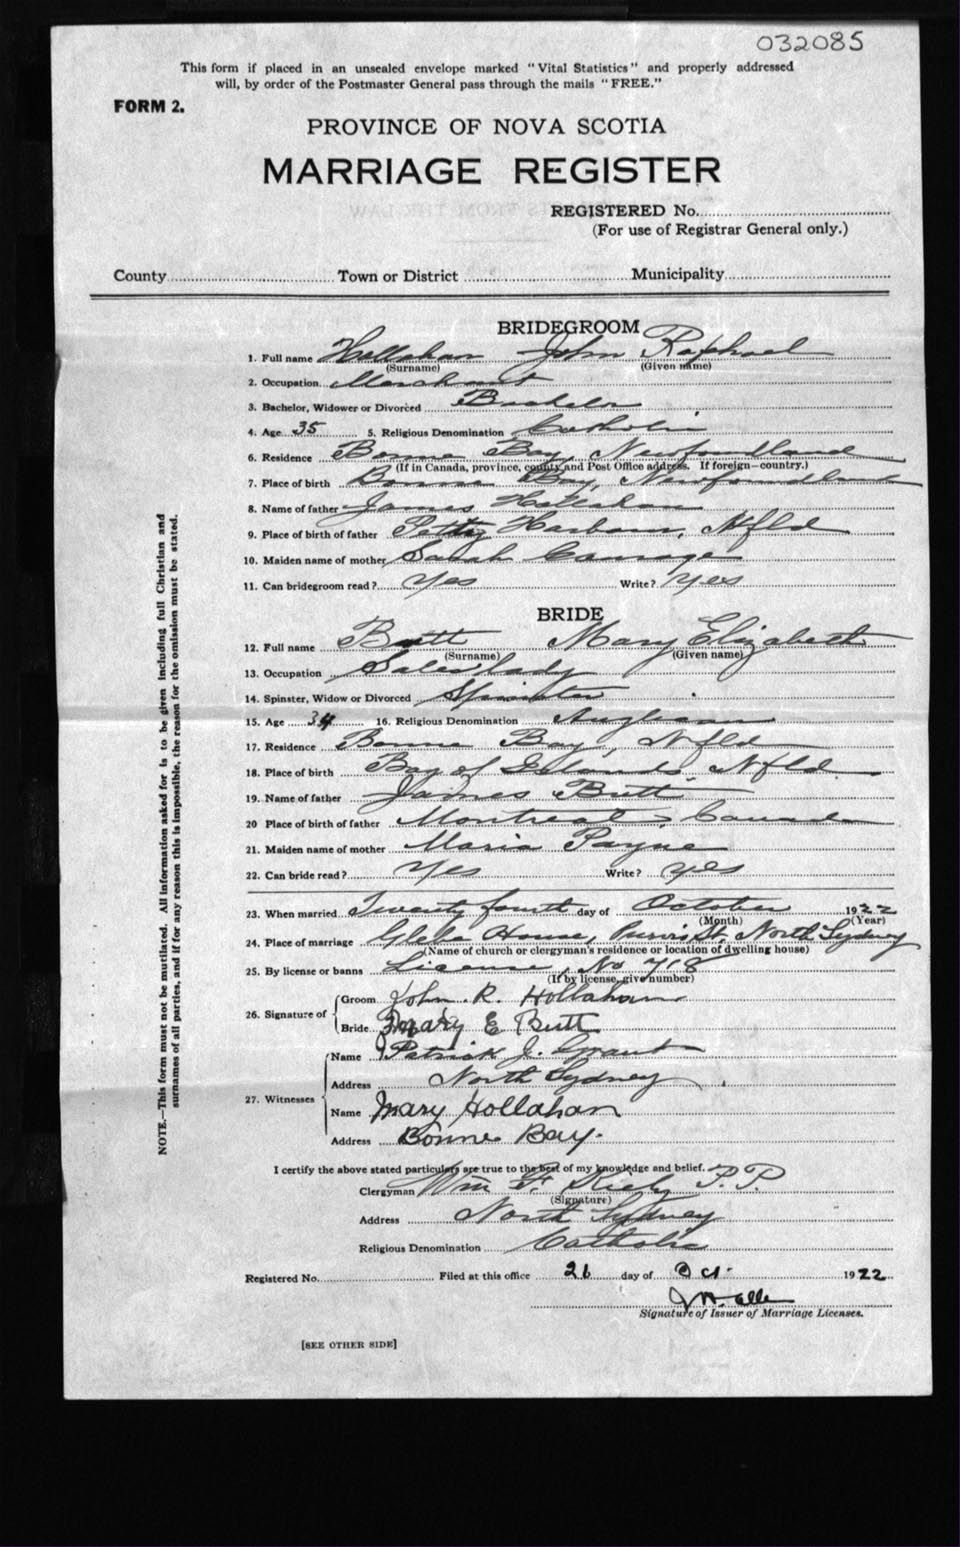 032085
This form if placed in an unsealed envelope marked "Vital Statistics" and properly addressed
will, by order of the Postmaster General pass through the mails "FREE."
FORM 2.
PROVINCE OF NOVA SCOTIA
MARRIAGE REGISTER
REGISTERED No.
(For use of Registrar General only.)
County Town or District Municipality
BRIDEGROOM
1. Full name Hollahan John Raphael
(Surname) (Given name)
2. Occupation. Merchant
3. Bachelor, Widower or Divorced Bachelor
4. Age 35 5. Religious Denomination Catholic
6. Residence Bonne Bay, Newfoundland
(If in Canada, province, county and Post Office address. If foreign—country.)
7. Place of birth Bonne Bay, Newfoundland
8. Name of father James Hollahan
9. Place of birth of father Petty Harbour, Nfld
10. Maiden name of mother Sarah Courage
11. Can bridegroom read? Yes Write? Yes
BRIDE
12. Full name Butt Mary Elizabeth
(Surname) (Given name)
13. Occupation Saleslady
14. Spinster, Widow or Divorced Spinster
15. Age 34 16. Religious Denomination Anglican
17. Residence Bonne Bay, Nfld
18. Place of birth Bay of Islands, Nfld.
19. Name of father James Butt
20 Place of birth of father Montreal, Canada
21. Maiden name of mother Maria Payne
22. Can bride read? Yes Write? Yes
23. When married Twenty fourth day of October 1922
(Month) (Year)
24. Place of marriage Glebe House, Purvis St, North Sydney
(Name of church or clergyman's residence or location of dwelling house)
25. By license or banns License, No 718
(If by license, give number)
26. Signature of Groom John R. Hollahan
Bride Mary E Butt
27. Witnesses Name Patrick J. Grant
Address North Sydney
Name Mary Hollahan
Address Bonne Bay.
I certify the above stated particulars are true to the best of my knowledge and belief.
Clergyman Wm F. Kiely P.P.
(Signature)
Address North Sydney
Religious Denomination Catholic
Registered No. Filed at this office 26 day of Oct. 1922
Signature of Issuer of Marriage Licenses.
[SEE OTHER SIDE]
NOTE.—This form must not be mutilated. All information asked for is to be given including full Christian and
surnames of all parties, and if for any reason this is impossible, the reason for the omission must be stated.